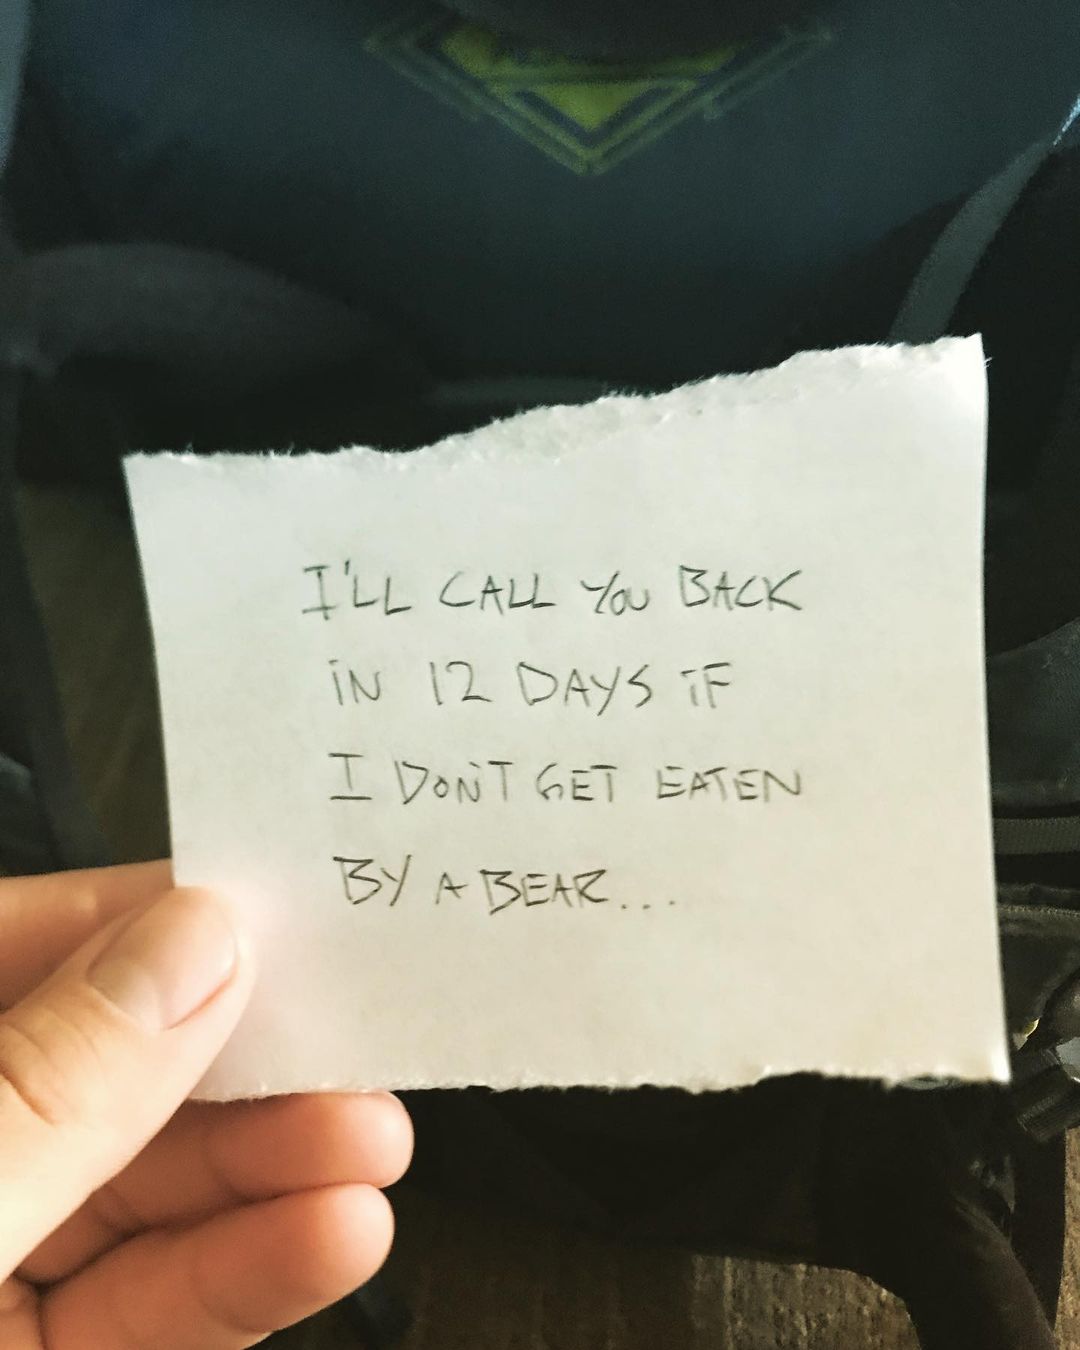 I'LL CALL YOU BACK
IN 12 DAYS IF
I DON'T GET EATEN
BY A BEAR...